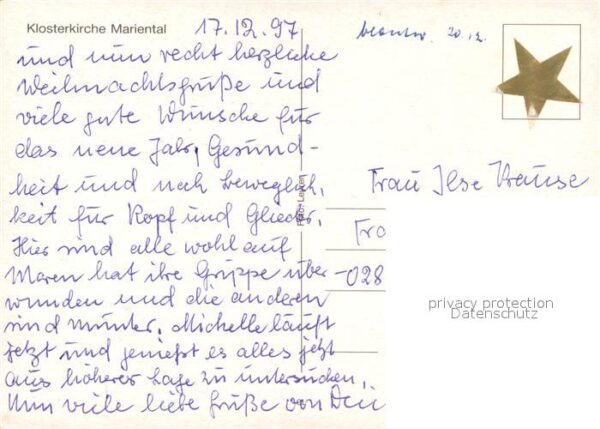 Klosterkirche Mariental
17.12.97
beantw. 20.12.
und nun recht herzliche
Weihnachtsgrüße und
viele gute Wünsche für
das neue Jahr, Gesund-
heit und noch Beweglich,
keit für Kopf und Glieder.
Hier sind alle wohl auf
Maren hat ihre Grippe über
wunden und die anderen
sind munter. Michelle läuft
jetzt und genießt es alles jetzt
aus höherer Lage zu untersuchen.
Nun viele liebe Grüße von
Frau Ilse Krause
Fra
-028
privacy protection
Datenschutz